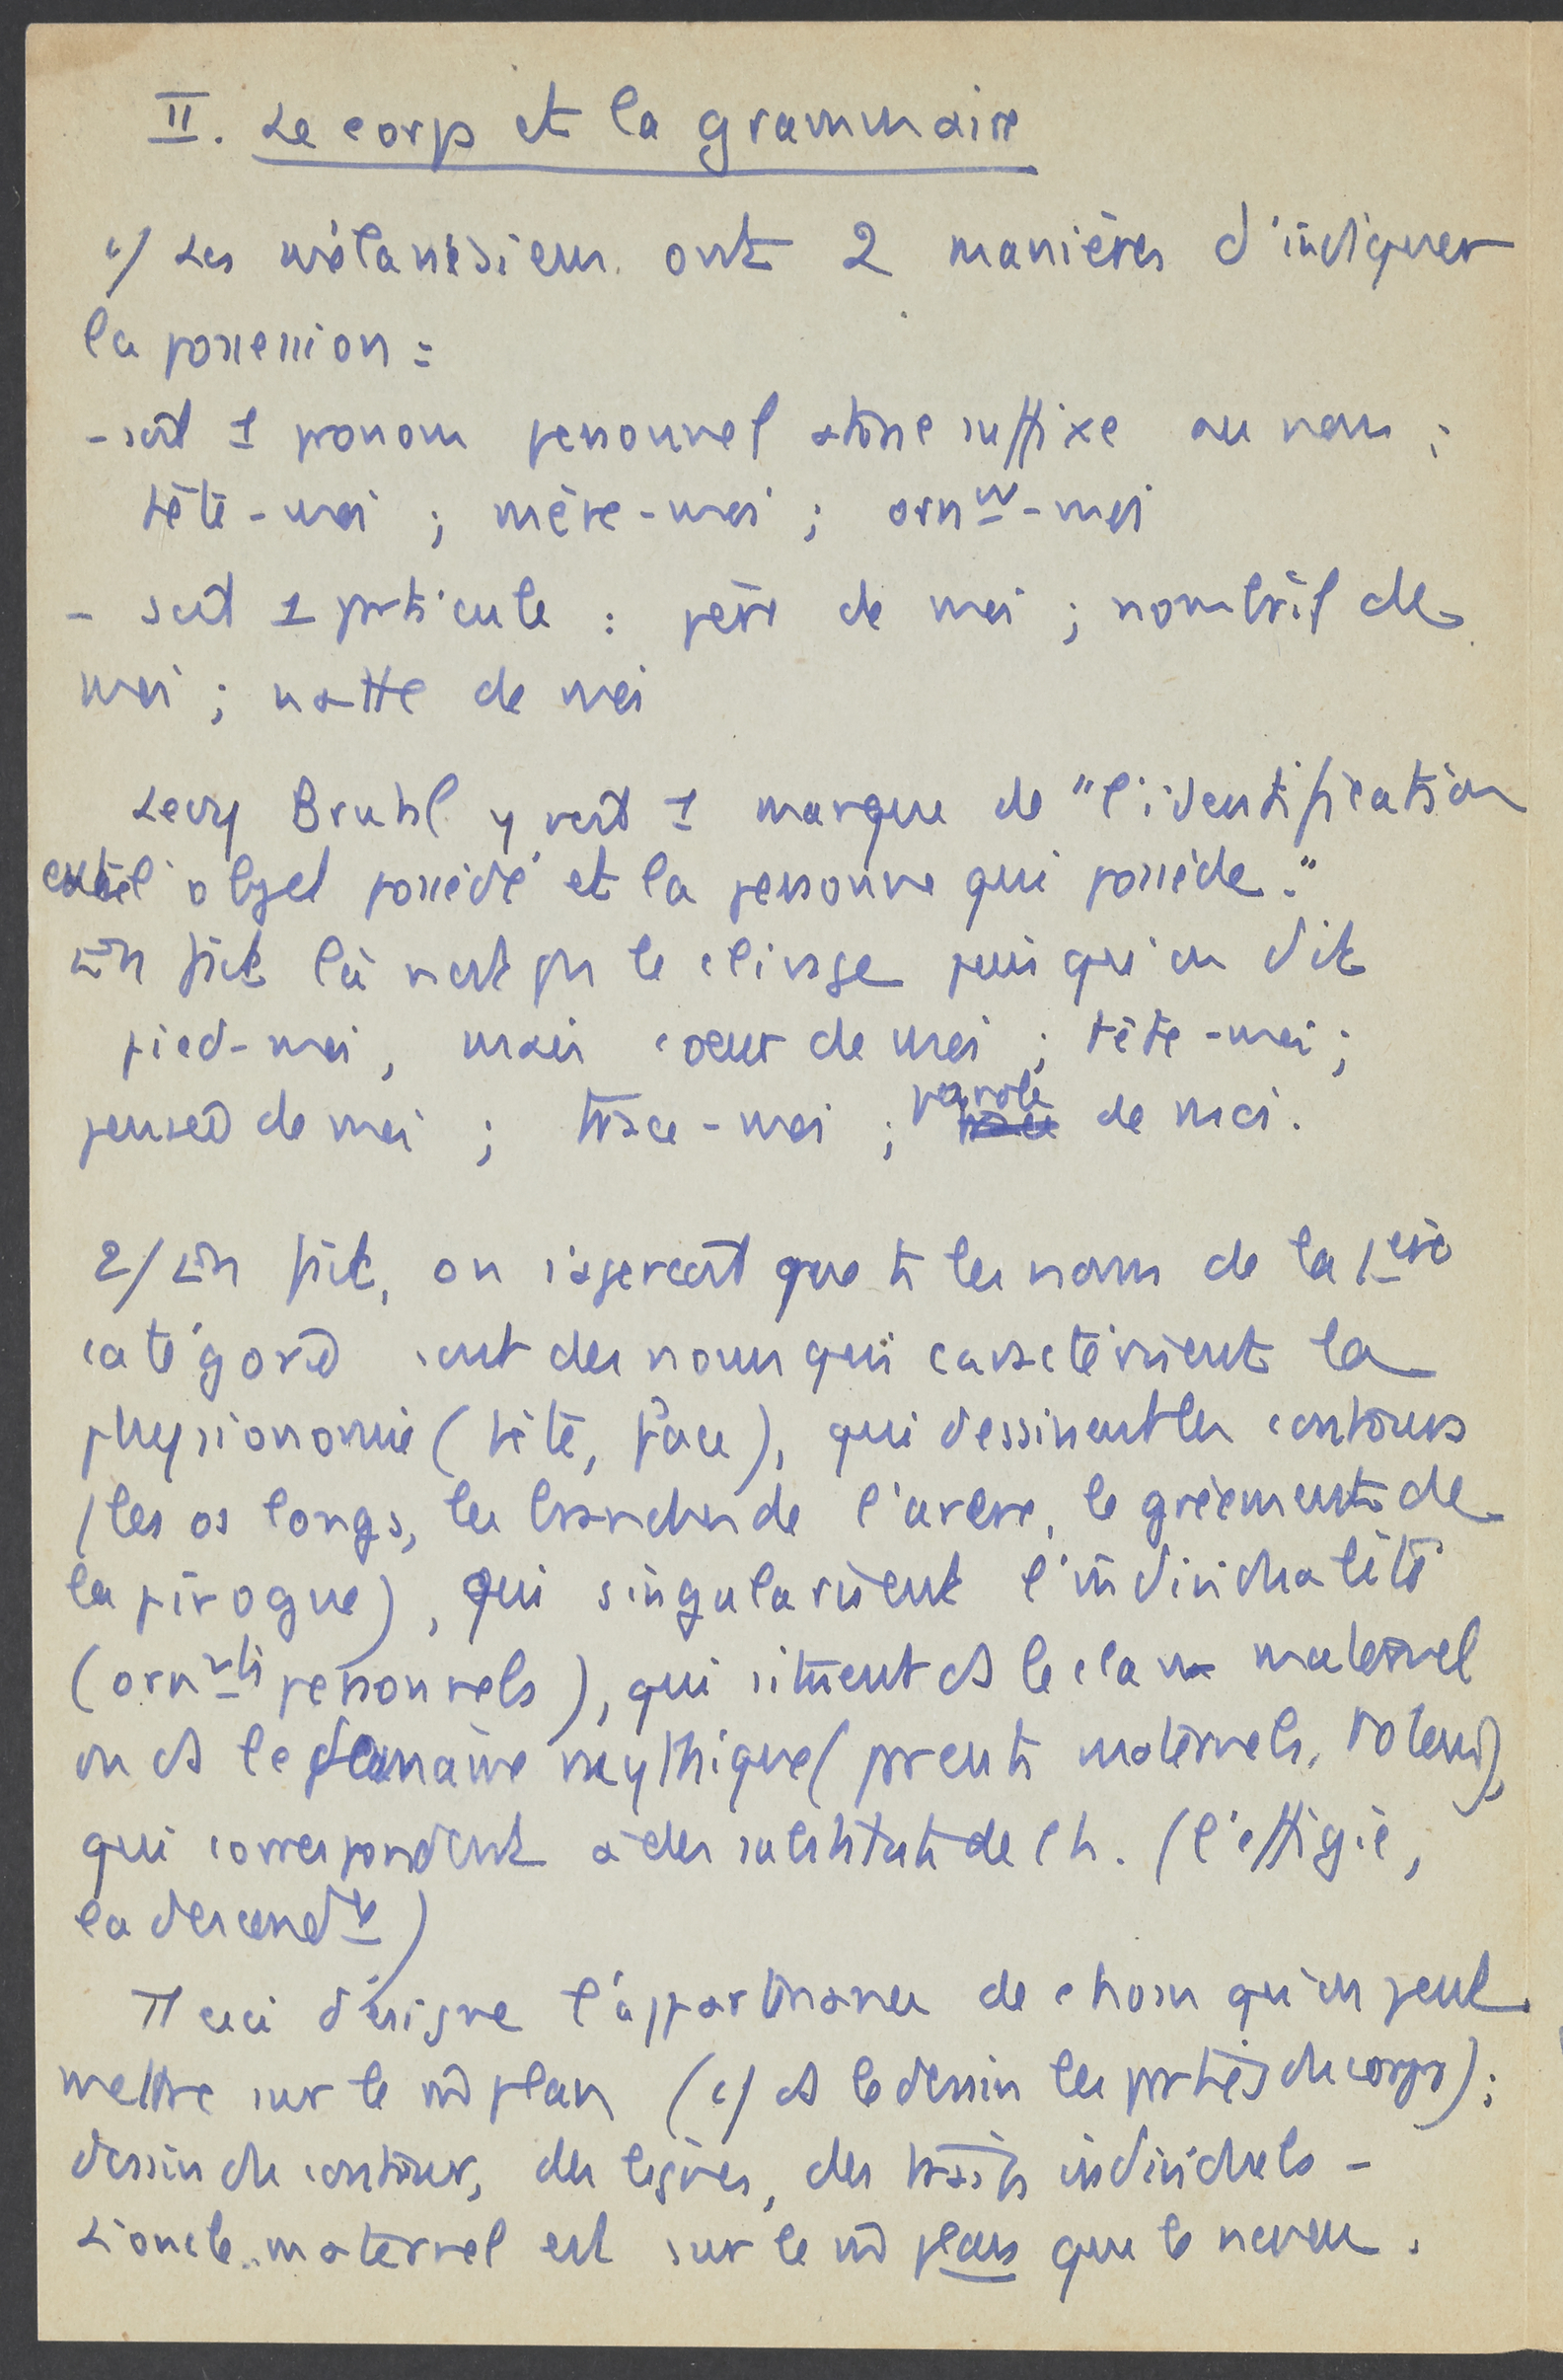 II. Le corps et la grammaire
1/ Les mélanésiens ont 2 manières d'indiquer
la possession :
- soit 1 pronom personnel atone suffixe au nom :
tête-moi ; mère-moi ; ornnt-moi
- soit 1 prticule : père de moi ; nombril de
moi ; natte de moi
Levy Bruhl y voit 1 marque de "l'identification
entre l'objet possédé et la personne qui possède."
En fait là n'est ps le clivage puisqu'on dit
pied-moi, mais coeur de moi ; tête-moi ;
pensée de moi ; trace-moi ; parole de moi.
2/ En fait, on s'aperçoit que ts les noms de la 1ère
catégorie sont des noms qui caractérisent la
physionomie (tête, face), qui dessinent les contours
(les os longs, les branches de l'arbre, le gréement de
la pirogue), qui singularisent l'individualité
(ornnts personnels), qui situent ds le clan maternel
ou ds le domaine mythique (prents maternels, totems),
qui correspondent à des substituts de l'h. (l'effigie,
la descendce)
Tt ceci désigne l'appartenance de choses qu'on peut
mettre sur le m̂ plan (c/ ds le dessin les prties du corps) :
dessin du contour, des lignes, des traits individuels -
L'oncle maternel est sur le m̂ plan que le neveu.